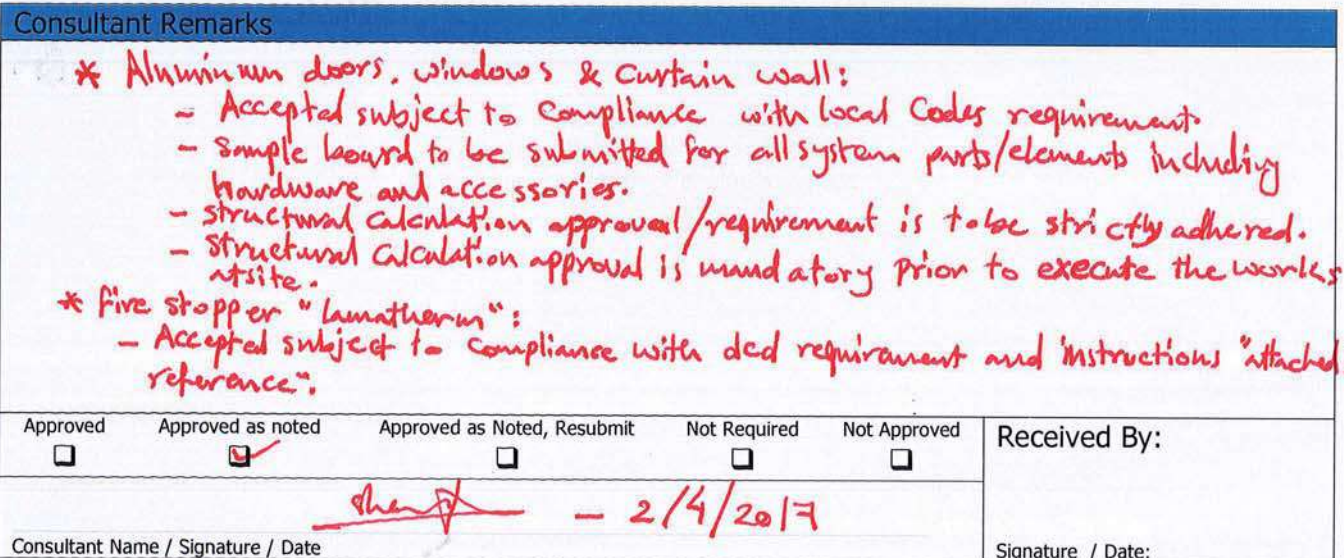 Consultant Remarks
* Aluminum doors, windows & Curtain wall:
- Accepted subject to Compliance with local Codes requirement.
- Sample board to be submitted for all system parts/elements including
hardware and accessories.
- Structural Calculation approval/requirement is to be strictly adhered.
- Structural Calculation approval is mandatory prior to execute the works
at site.
* Fire stopper "Lamatherm":
- Accepted subject to compliance with dcd requirement and instructions "attached
reference".
Approved Approved as noted Approved as Noted, Resubmit Not Required Not Approved Received By:
- 2/4/2017
Consultant Name / Signature / Date Signature / Date: